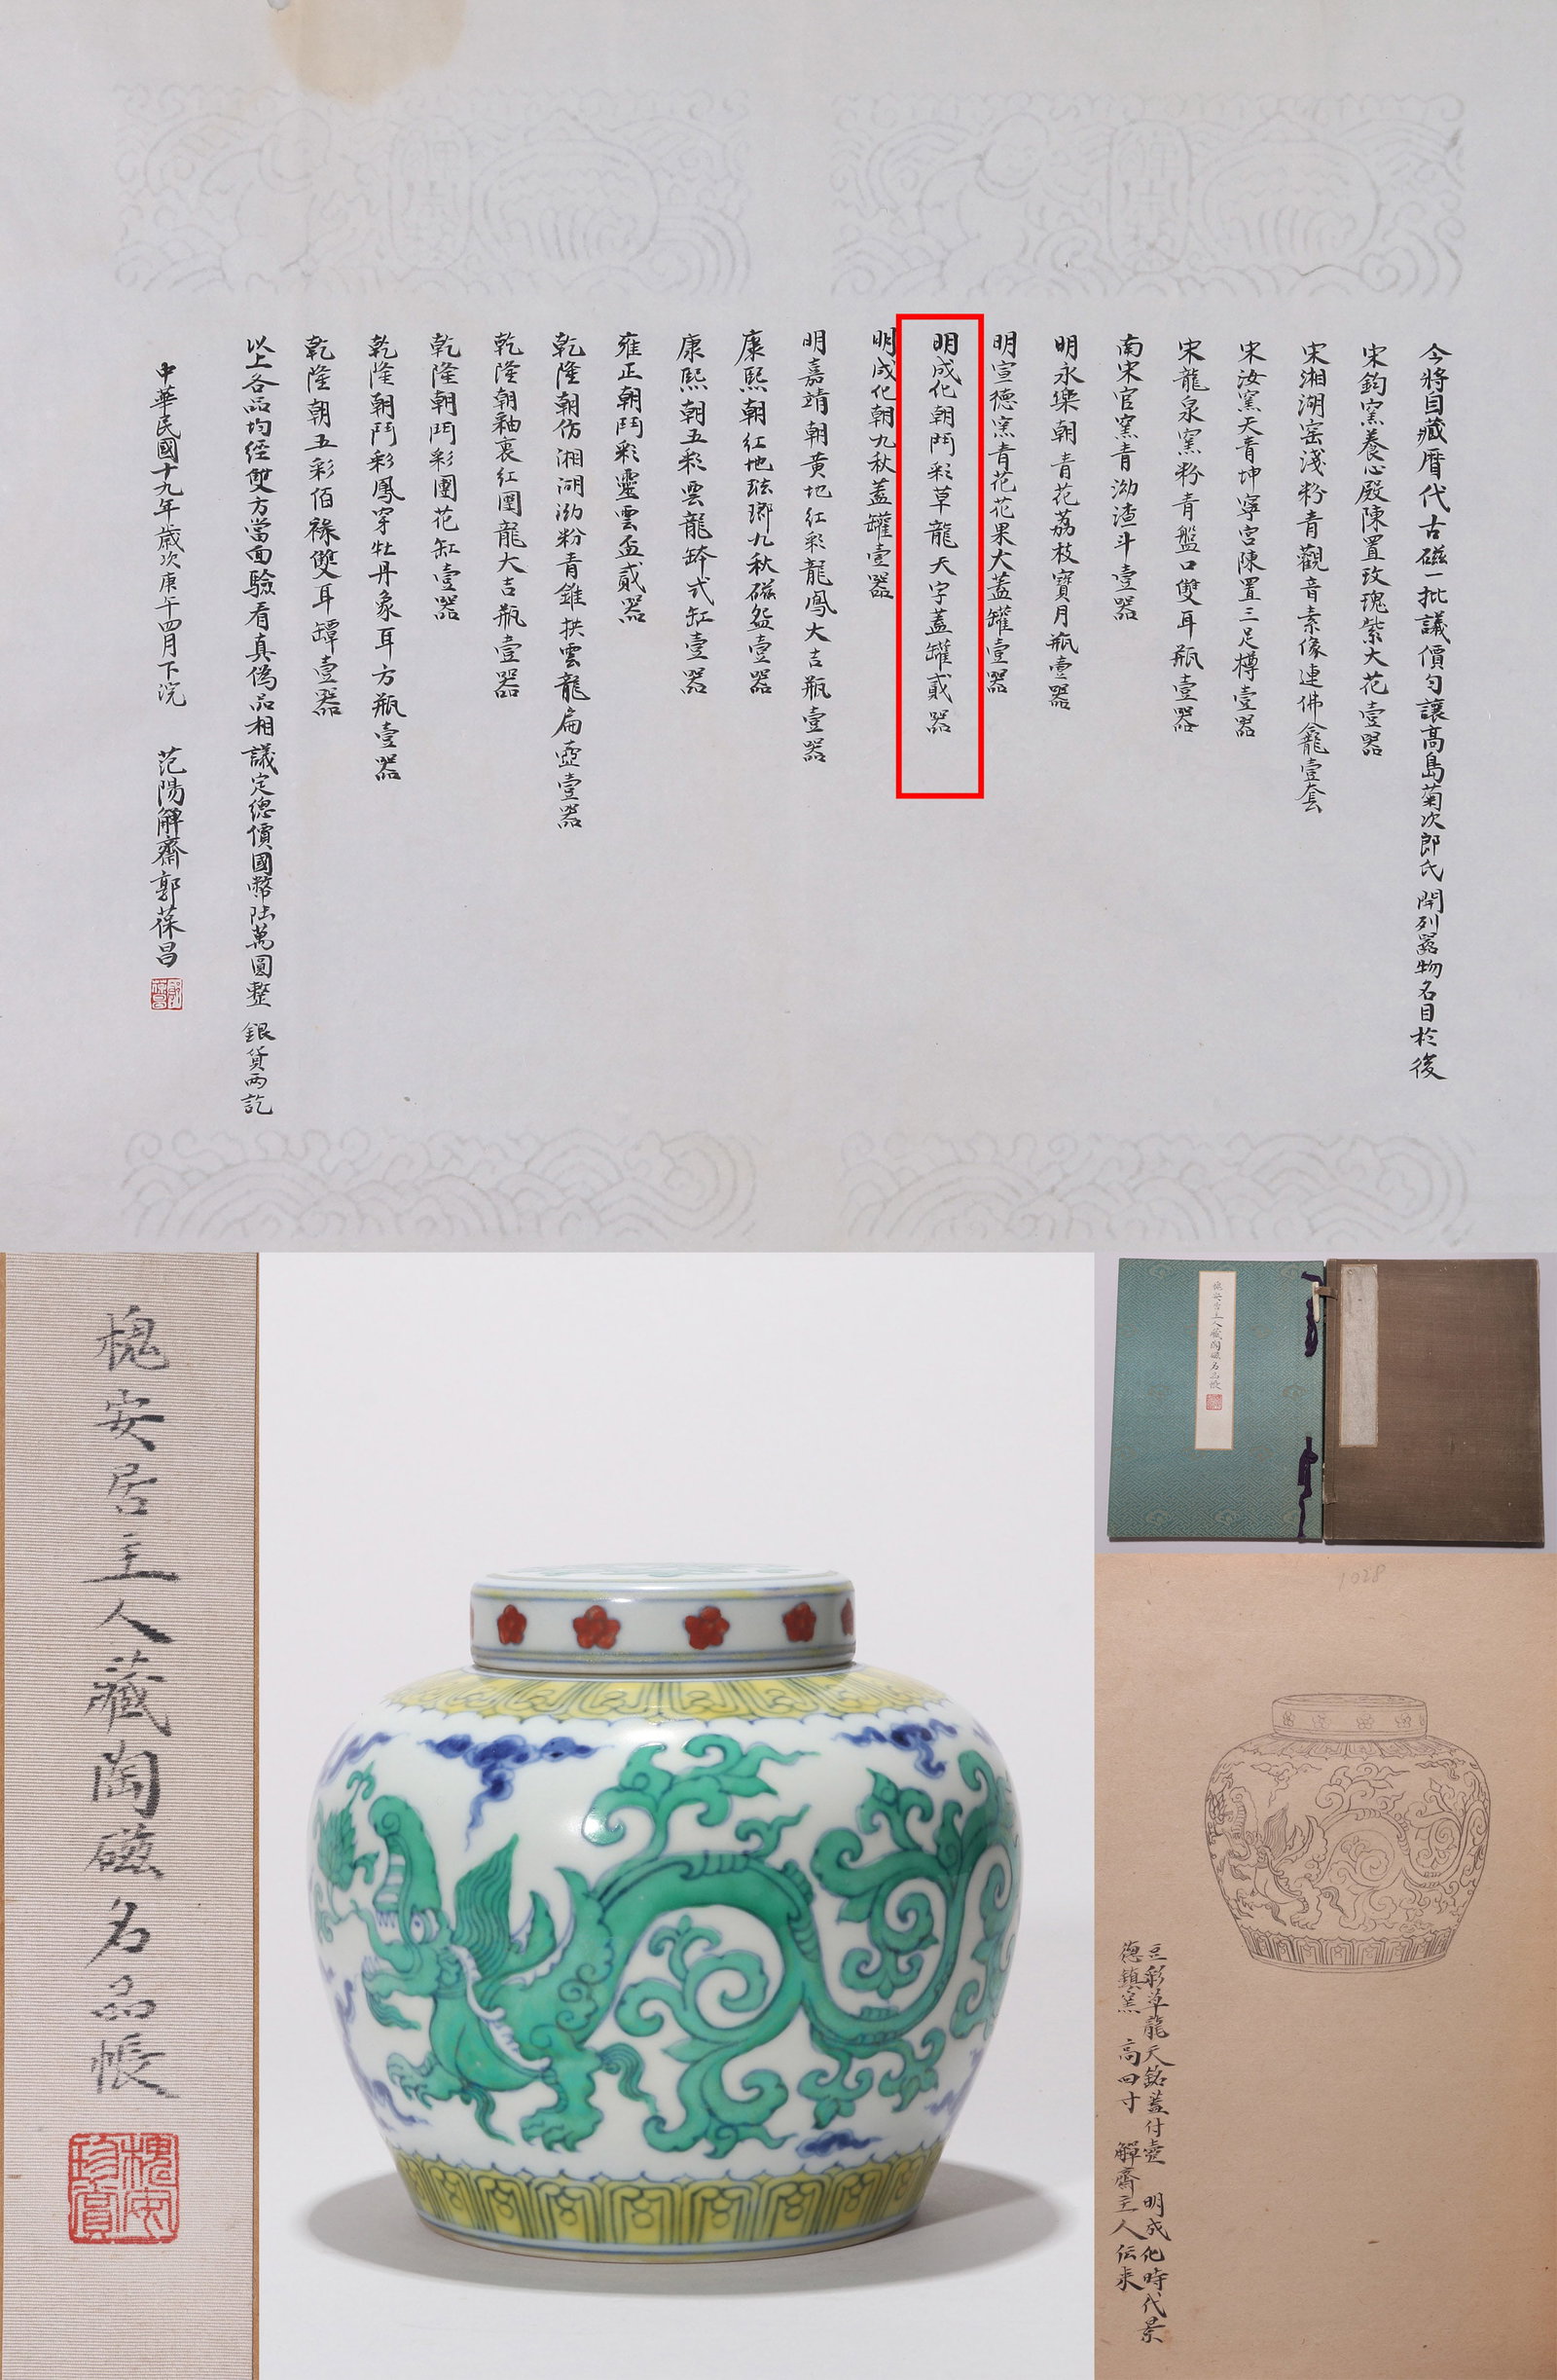 今將自藏曆代古磁一批議價勻讓高島菊次郎氏 開列器物名目於後
宋鈞窯養心殿陳置玫瑰紫大花壹器
宋湘湖窑淺粉青觀音素像連佛龕壹套
宋汝窯天青坤寧宮陳置三足樽壹器
宋龍泉窯粉青盤口雙耳瓶壹器
南宋官窯青泑渣斗壹器
明永樂朝青花荔枝寶月瓶壹器
明宣德窯青花花果大蓋罐壹器
明成化朝鬥彩草龍天字蓋罐貳器
明成化朝九秋蓋罐壹器
明嘉靖朝黃地紅彩龍鳳大吉瓶壹器
康熙朝紅地琺瑯九秋磁盌壹器
康熙朝五彩雲龍缽式缸壹器
雍正朝鬥彩靈雲盃貳器
乾隆朝仿湘湖泑粉青錐拱雲龍扁壺壹器
乾隆朝釉裏紅團龍大吉瓶壹器
乾隆朝鬥彩團花缸壹器
乾隆朝鬥彩鳳穿牡丹象耳方瓶壹器
乾隆朝五彩佰祿雙耳罈壹器
以上各品均经雙方當面驗看真僞品相議定總價國幣陆萬圓整 銀貨两訖
中華民國十九年歲次庚午四月下浣 范陽觶齋郭葆昌
槐安居主人藏陶磁名品帳
槐安珍賞
槐安居主人藏陶磁名品帳
1028
豆彩草龍天銘蓋付壺 明成化時代景
德鎮窯 高四寸 觶齋主人伝来